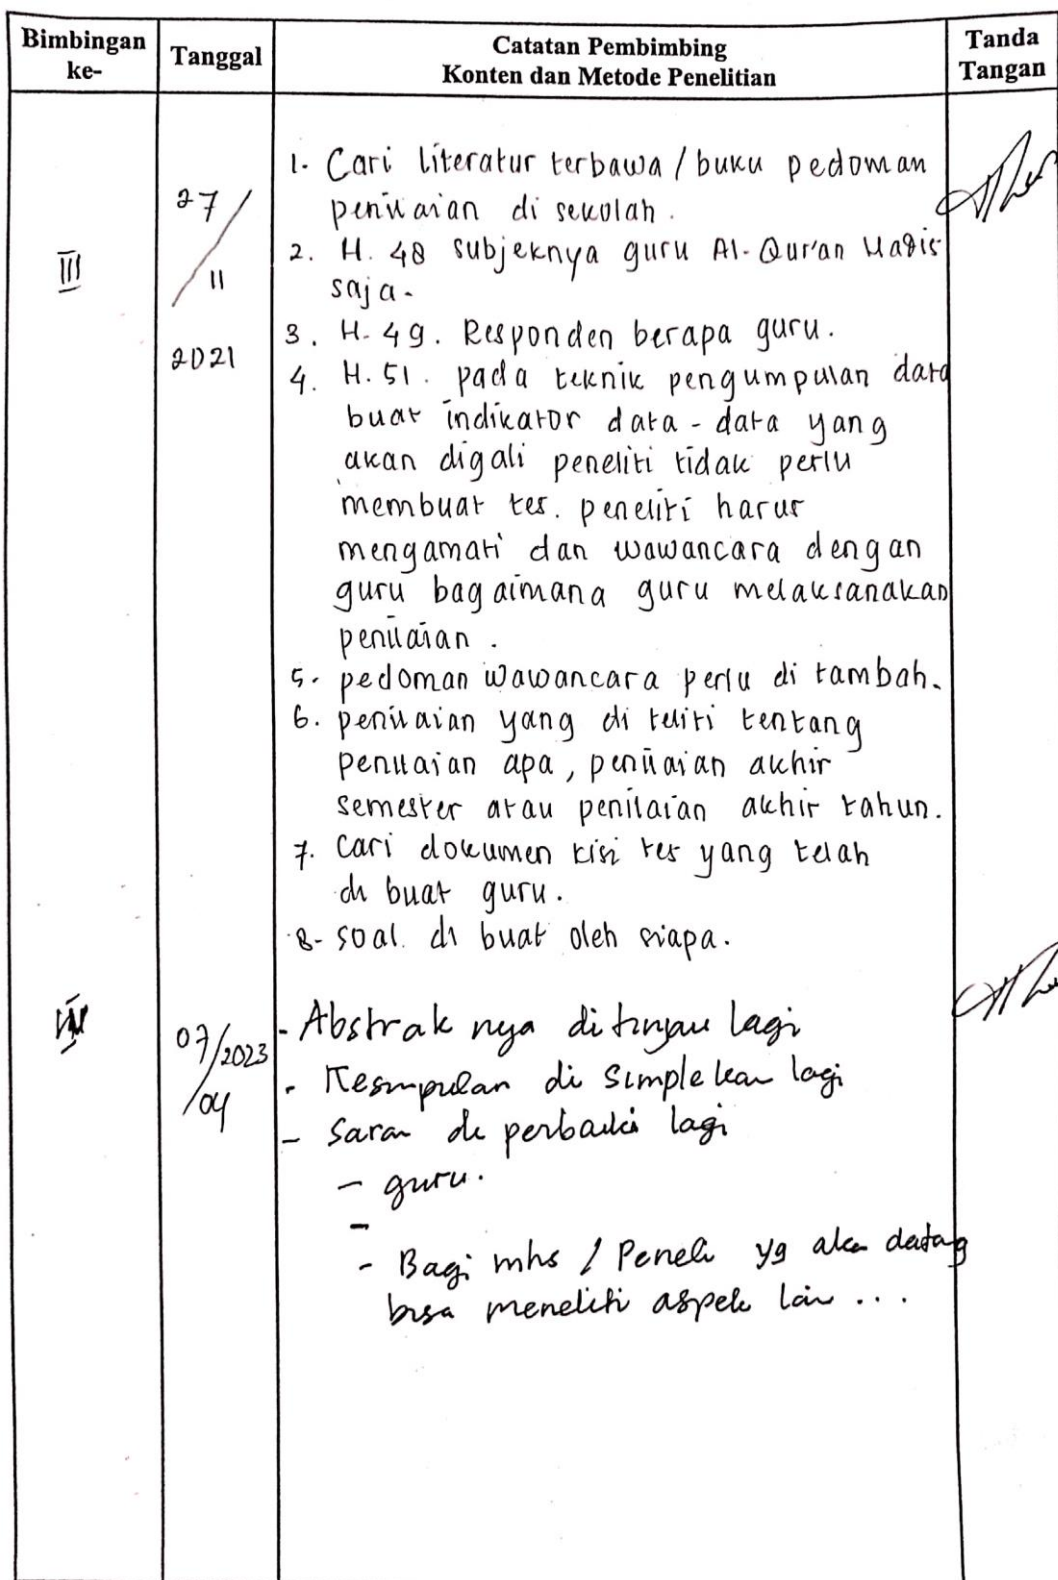 Bimbingan ke-
Tanggal
Catatan Pembimbing
Konten dan Metode Penelitian
Tanda Tangan
III
27/
/11
2021
1. Cari literatur terbawa / buku pedoman
penilaian di sekolah.
2. H. 48 subjeknya guru Al-Qur'an Hadis
saja.
3. H. 49. Responden berapa guru.
4. H. 51. pada teknik pengumpulan data
buat indikator data - data yang
akan digali peneliti tidak perlu
membuat tes. peneliti harus
mengamati dan wawancara dengan
guru bagaimana guru melaksanakan
penilaian.
5. pedoman wawancara perlu di tambah.
6. penilaian yang di teliti tentang
penilaian apa, penilaian akhir
semester atau penilaian akhir tahun.
7. Cari dokumen kisi tes yang telah
di buat guru.
8. soal di buat oleh siapa.
07/2023
/04
- Abstrak nya ditinjau lagi
- Kesimpulan di simplekan lagi
- Saran di perbaiki lagi
- guru.
-
- Bagi mhs / Peneli yg akan datang
bisa meneliti aspek lain ...